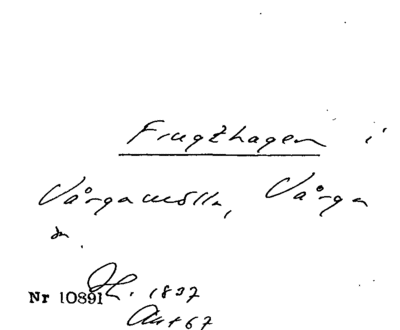 Frugthagen i
Vångamölla, Vånga
sn.
Nr 10891 Jl. 1897
Ak 467